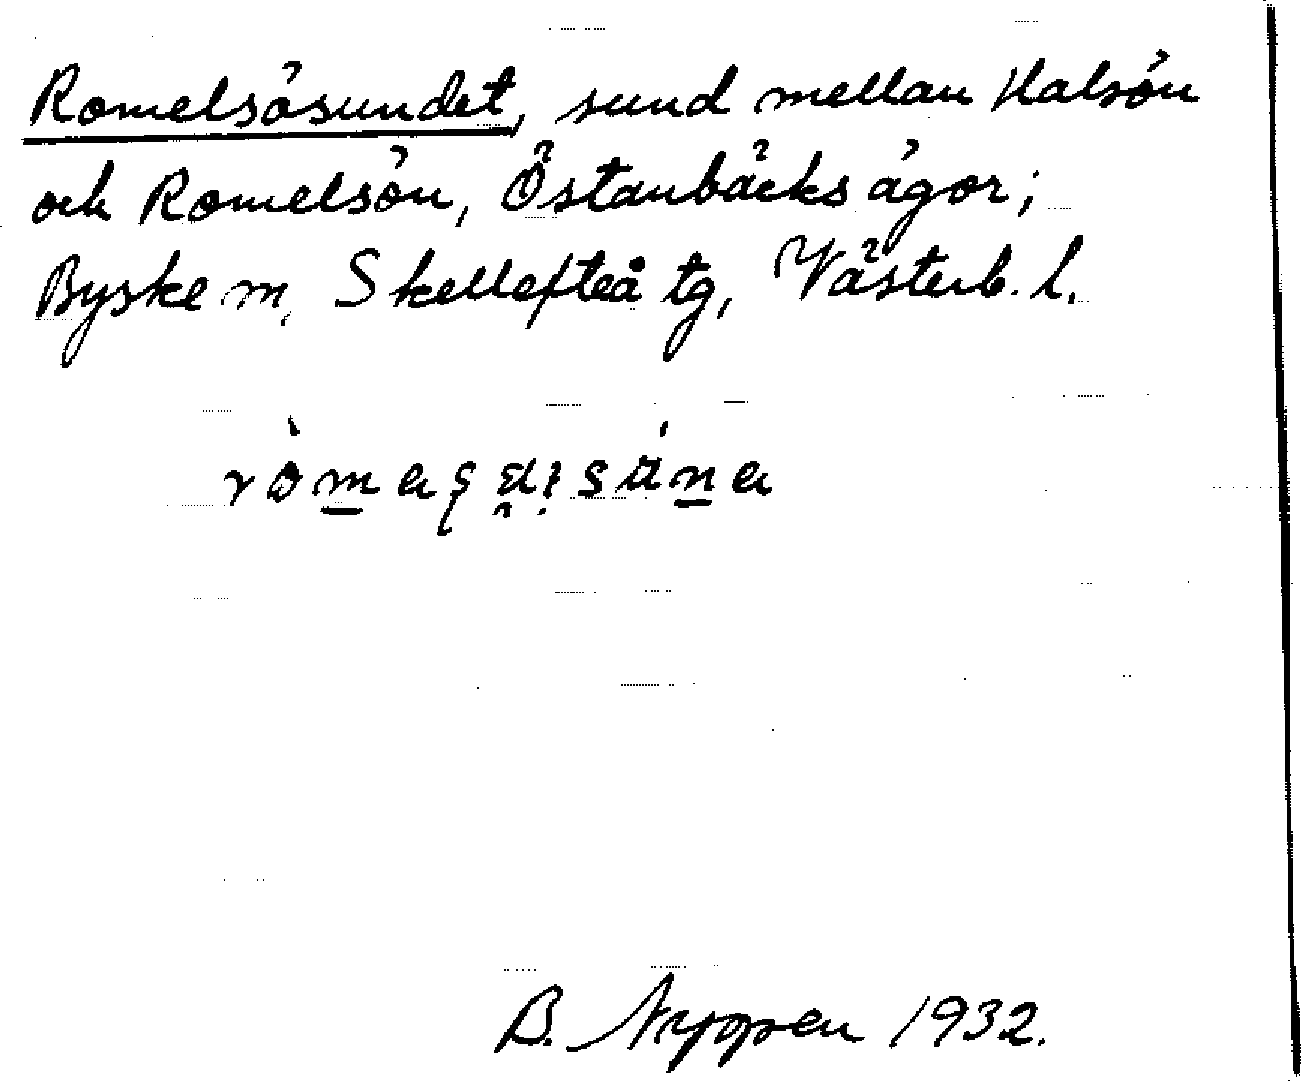 Romelsösundet, sund mellan Halsön
och Romelsön, Östanbäcks ägor;
Byske sn, Skellefteå tg, Västerb. l.
B. Nyppen 1932.